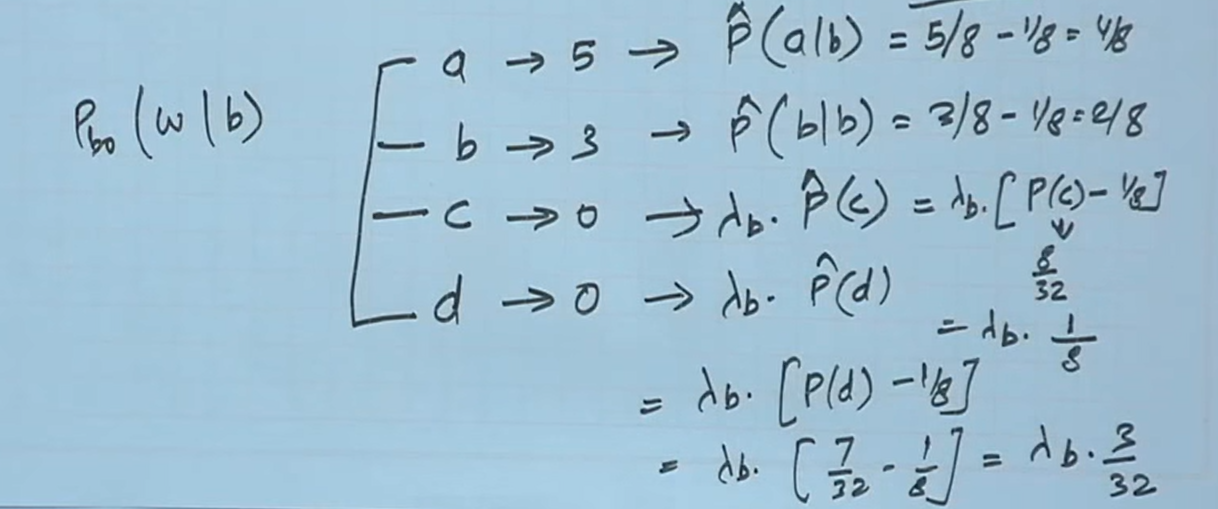 P_bo (w|b)
a → 5 → P̂(a|b) = 5/8 - 1/8 = 4/8
b → 3 → P̂(b|b) = 3/8 - 1/8 = 2/8
c → 0 → λ_b. P̂(c) = λ_b. [P(c) - 1/8]
↓
8/32
d → 0 → λ_b. P̂(d)
= λ_b. 1/8
= λ_b. [P(d) - 1/8]
= λ_b. [7/32 - 1/8] = λ_b. 3/32